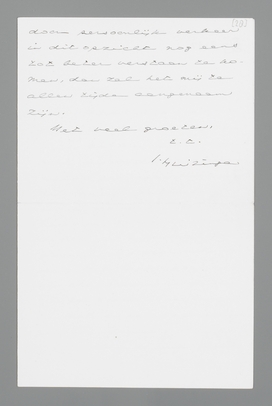 (10)
door persoonlijk verkeer
in dit opzicht nog eens
tot beter verstaan te ko-
men, dan zal het mij te
allen tijde aangenaam
zijn.
Met veel groeten.
t. t.
J Huizinga